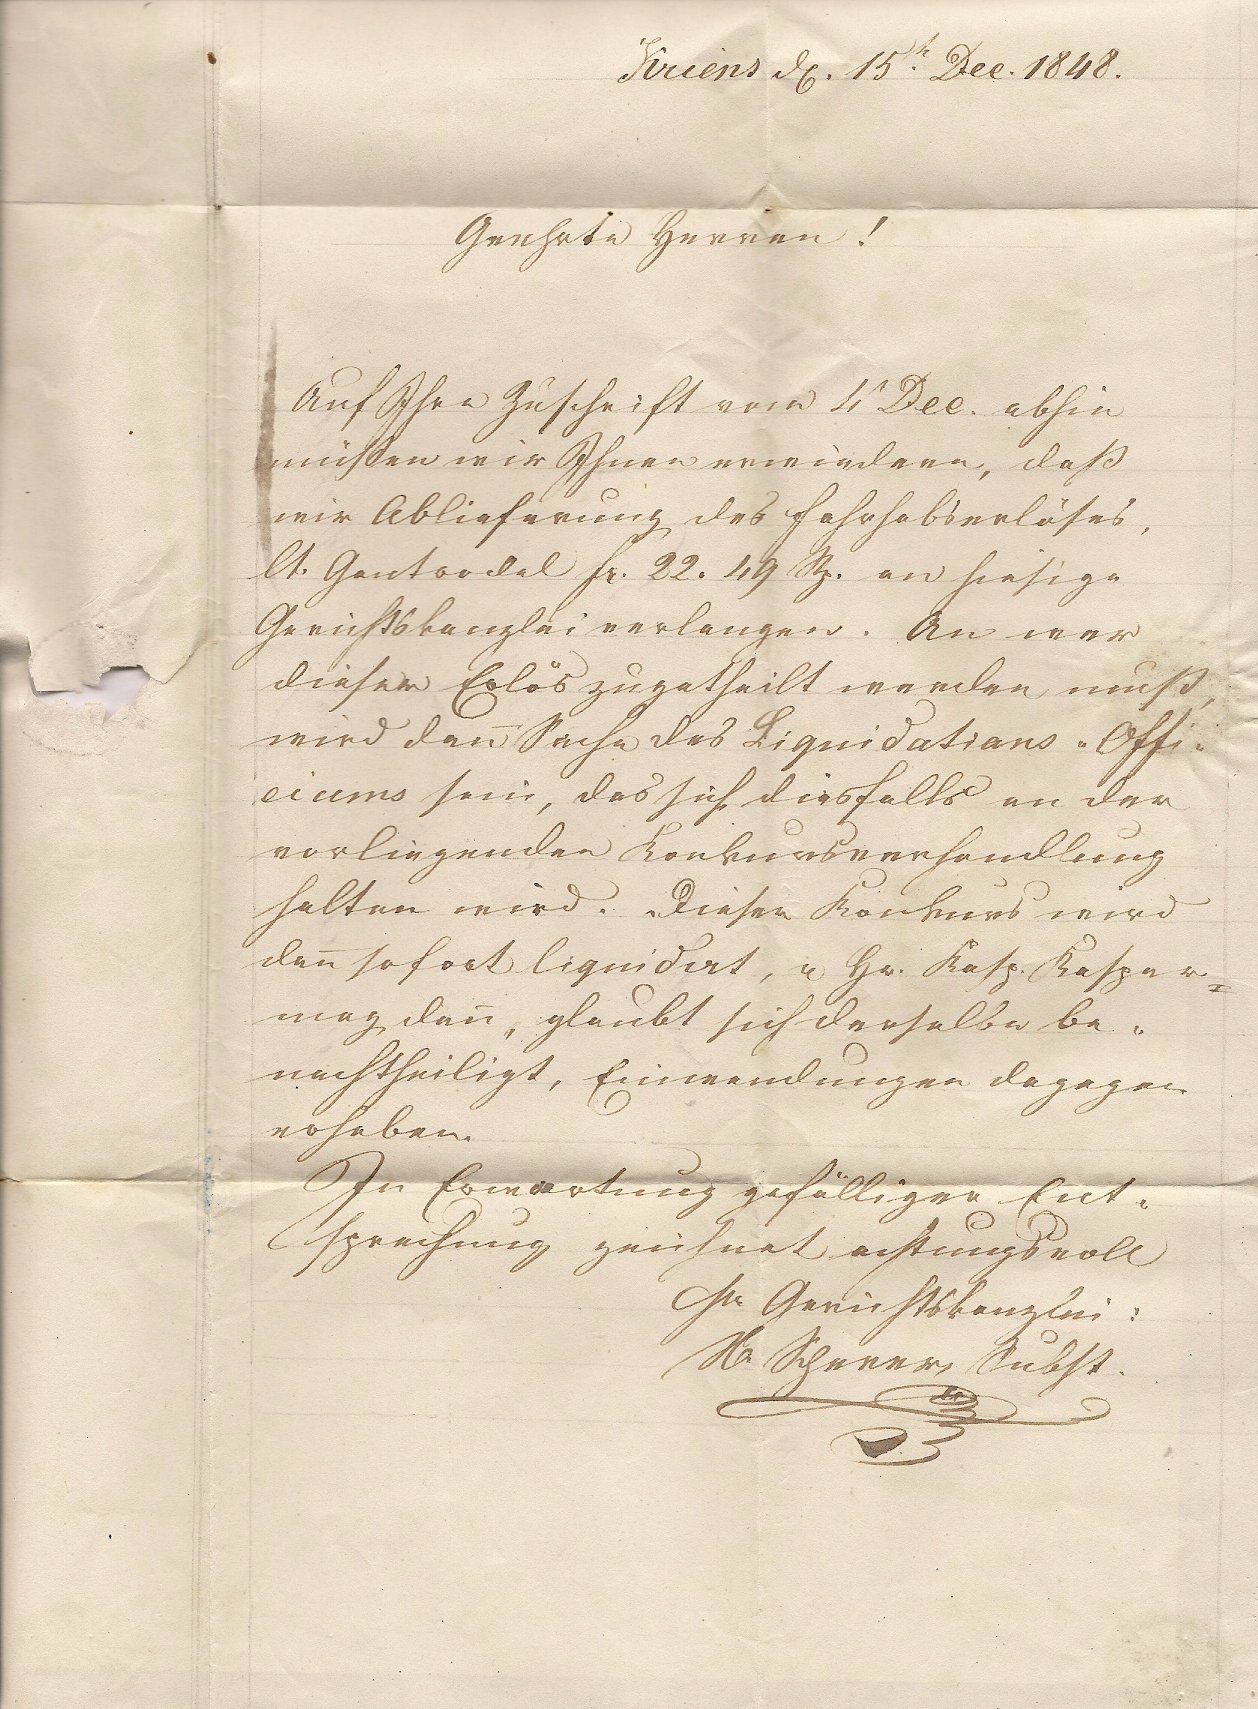 Kriens d. 15t Dec. 1848.
Geehrte Herren!
Auf Ihre Zuschrift vom 4 Dec. abhin
müssen wir Ihnen erwiedern, daß
wir Ablieferung des Fahrhabserlöses,
lt. Gantrodel fr. 22. 49 Rp. an hiesige
Gerichtskanzlei verlangen. An wen
dieser Erlös zugetheilt werden muß,
wird dan̄ Sache des Liquidations-Offi-
ciums sein, das sich diesfalls an der
vorliegenden Konkursverhandlung
halten wird. Dieser Konkurs wird
dan̄ sofort liquidirt, u Hr. Kasp. Kasper
mag dan̄, glaubt sich derselbe be-
nachtheiligt, Einwendungen dagegen
erheben.
In Erwartung gefälliger Ent-
sprechung zeichnet achtungsvoll
Gerichtskanzlei:
Scherer, Subst.